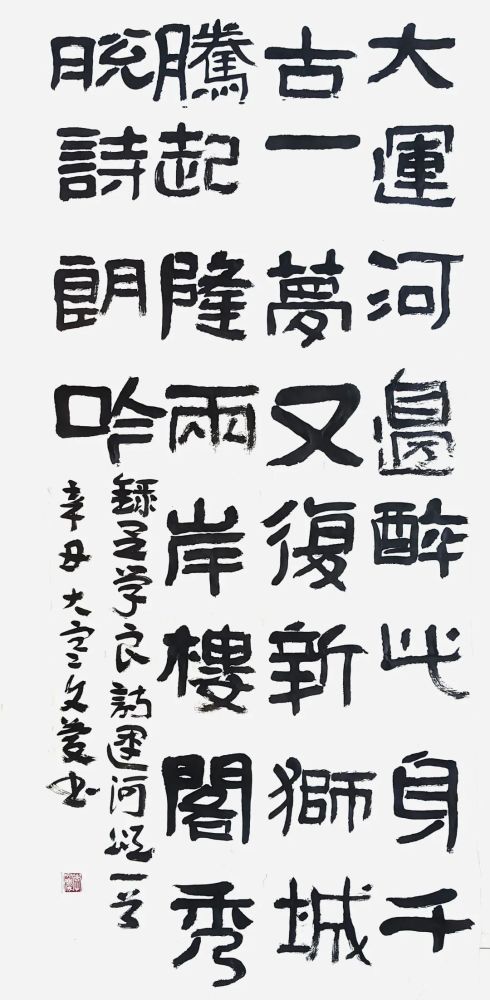 大運河邊醉此身千
古一夢又復新獅城
騰起隆兩岸樓閣秀
脫詩朗吟
錄学良詩運河頌一首
辛丑大文書